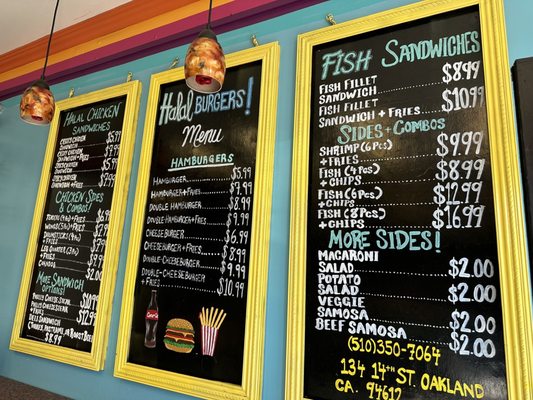 Halal Chicken
Sandwiches
$5.99
Sandwich
+ Fries
Sandwich
+ Fries
Chicken Sides
& Combos
+ Fries
+ Fries
+ Fries
$2.00
More Sandwich
Options
Philly Cheese Steak
$10.99
Philly Cheese Steak
+ Fries
$12.99
Deli Sandwich
$8.99
Halal
Burgers!
Menu
Hamburgers
Hamburger $5.99
Hamburger + Fries $7.99
Double Hamburger $8.99
Double-Hamburger + Fries $9.99
Cheeseburger $6.99
Cheeseburger + Fries $8.99
Double-Cheeseburger $9.99
Double-Cheeseburger
+ Fries $10.99
Fish Sandwiches
Fish Fillet
Sandwich $8.99
Fish Fillet
Sandwich + Fries $10.99
Sides + Combos
Shrimp (6 pcs)
+ Fries $9.99
Fish (4 pcs)
+ Chips $8.99
Fish (6 pcs)
+ Chips $12.99
Fish (8 pcs)
+ Chips $16.99
More Sides!
Macaroni
Salad $2.00
Potato
Salad $2.00
Veggie
Samosa $2.00
Beef Samosa $2.00
(510) 350-7064
134 14th St. Oakland
CA. 94612